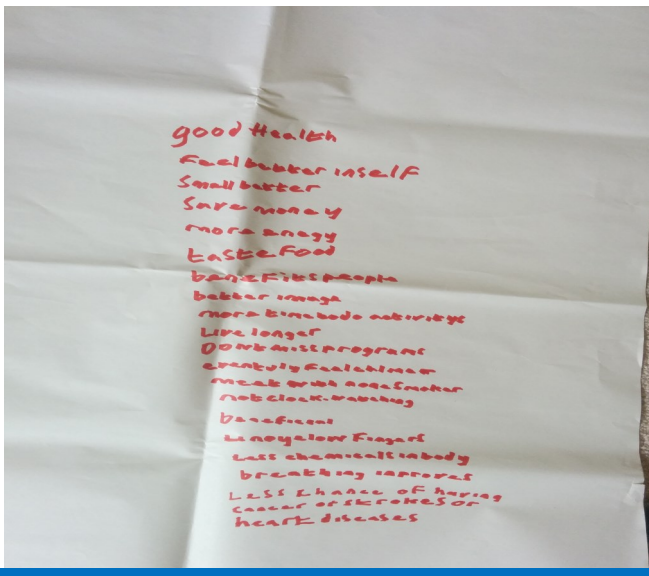 good Health
Feel better inself
Smell better
Save money
more enagy
taste Food
beneFits people
better image
more time to do activitys
Live longer
Dont miss programs
eventuly feel calmer
meet with none Smoker
not clock-watching
beneficial
no yelow Fingers
Less chemicals in body
breathing improves
Less chance of having
cancer or strokes or
heart diseases